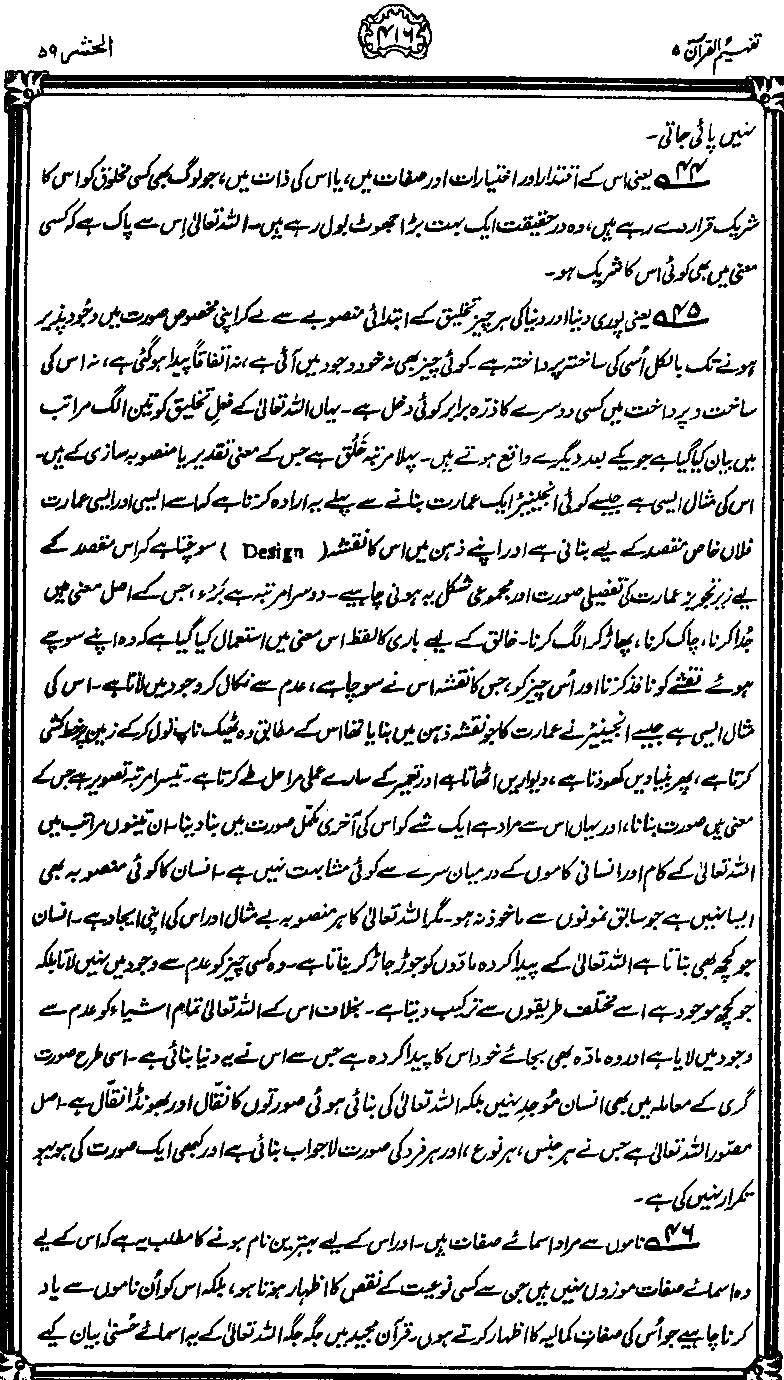 تفہیم القرآن ۵
۴۱۶
الحشر ۵۹
نہیں پائی جاتی۔
۴۴ یعنی اس کے اقتدار اور اختیارات اور صفات میں، یا اس کی ذات میں، جو لوگ بھی کسی مخلوق کو اس کا
شریک قرار دے رہے ہیں، وہ درحقیقت ایک بہت بڑا جھوٹ بول رہے ہیں۔ اللہ تعالیٰ اِس سے پاک ہے کہ کسی
معنی میں بھی کوئی اس کا شریک ہو۔
۴۵ یعنی پوری دنیا اور دنیا کی ہر چیز تخلیق کے ابتدائی منصوبے سے لے کر اپنی مخصوص صورت میں وجود پذیر
ہونے تک بالکل اُسی کی ساختہ پرداختہ ہے۔ کوئی چیز بھی نہ خود وجود میں آئی ہے، نہ اتفاقاً پیدا ہو گئی ہے، نہ اس کی
ساخت و پرداخت میں کسی دوسرے کا ذرہ برابر کوئی دخل ہے۔ یہاں اللہ تعالیٰ کے فعلِ تخلیق کو تین الگ مراتب
میں بیان کیا گیا ہے جو یکے بعد دیگرے واقع ہوتے ہیں۔ پہلا مرتبہ خَلْق ہے جس کے معنی تقدیر یا منصوبہ سازی کے ہیں۔
اس کی مثال ایسی ہے جیسے کوئی انجینیئر ایک عمارت بنانے سے پہلے یہ ارادہ کرتا ہے کہ اسے ایسی اور ایسی عمارت
فلاں خاص مقصد کے لیے بنانی ہے اور اپنے ذہن میں اس کا نقشہ ( Design ) سوچتا ہے کہ اس مقصد کے
لیے زیرِ تجویز عمارت کی تفصیلی صورت اور مجموعی شکل یہ ہونی چاہیے۔ دوسرا مرتبہ ہے بَرْء، جس کے اصل معنی ہیں
جُدا کرنا، چاک کرنا، پھاڑ کر الگ کرنا۔ خالق کے لیے باری کا لفظ اس معنی میں استعمال کیا گیا ہے کہ وہ اپنے سوچے
ہوئے نقشے کو نافذ کرتا اور اُس چیز کو، جس کا نقشہ اس نے سوچا ہے، عدم سے نکال کر وجود میں لاتا ہے۔ اس کی
مثال ایسی ہے جیسے انجینیئر نے عمارت کا جو نقشہ ذہن میں بنایا تھا اس کے مطابق وہ ٹھیک ناپ تول کر کے زمین پر خط کشی
کرتا ہے، پھر بنیادیں کھودتا ہے، دیواریں اٹھاتا ہے اور تعمیر کے سارے عملی مراحل طے کرتا ہے۔ تیسرا مرتبہ تصویر ہے جس کے
معنی ہیں صورت بنانا، اور یہاں اس سے مراد ہے ایک شے کو اس کی آخری مکمل صورت میں بنا دینا۔ ان تینوں مراتب میں
اللہ تعالیٰ کے کام اور انسانی کاموں کے درمیان سرے سے کوئی مشابہت نہیں ہے۔ انسان کا کوئی منصوبہ بھی
ایسا نہیں ہے جو سابق نمونوں سے ماخوذ نہ ہو۔ مگر اللہ تعالیٰ کا ہر منصوبہ بے مثال اور اس کی اپنی ایجاد ہے۔ انسان
جو کچھ بھی بناتا ہے اللہ تعالیٰ کے پیدا کردہ مادّوں کو جوڑ جاڑ کر بناتا ہے۔ وہ کسی چیز کو عدم سے وجود میں نہیں لاتا بلکہ
جو کچھ موجود ہے اسے مختلف طریقوں سے ترکیب دیتا ہے۔ بخلاف اس کے اللہ تعالیٰ تمام اشیاء کو عدم سے
وجود میں لایا ہے اور وہ مادّہ بھی بجائے خود اس کا پیدا کردہ ہے جس سے اس نے یہ دنیا بنائی ہے۔ اسی طرح صورت
گری کے معاملہ میں بھی انسان مُوجد نہیں بلکہ اللہ تعالیٰ کی بنائی ہوئی صورتوں کا نقّال اور بھونڈا نقّال ہے۔ اصل
مصوّر اللہ تعالیٰ ہے جس نے ہر جنس، ہر نوع، اور ہر فرد کی صورت لاجواب بنائی ہے اور کبھی ایک صورت کی ہو بہو
تکرار نہیں کی ہے۔
۴۶ ناموں سے مراد اسمائے صفات ہیں۔ اور اس کے لیے بہترین نام ہونے کا مطلب یہ ہے کہ اس کے لیے
وہ اسمائے صفات موزوں نہیں ہیں جن سے کسی نوعیت کے نقص کا اظہار ہوتا ہو، بلکہ اس کو اُن ناموں سے یاد
کرنا چاہیے جو اُس کی صفاتِ کمالیہ کا اظہار کرتے ہوں۔ قرآن مجید میں جگہ جگہ اللہ تعالیٰ کے یہ اسمائے حُسنٰی بیان کیے